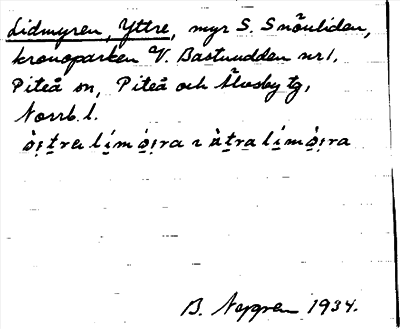 Lidmyren, Yttre, myr S. Snöuliden,
kronoparken V. Bastuudden nr 1,
Piteå sn, Piteå och Älvsby tg,
Norrb. l.
B. Nygren 1934.